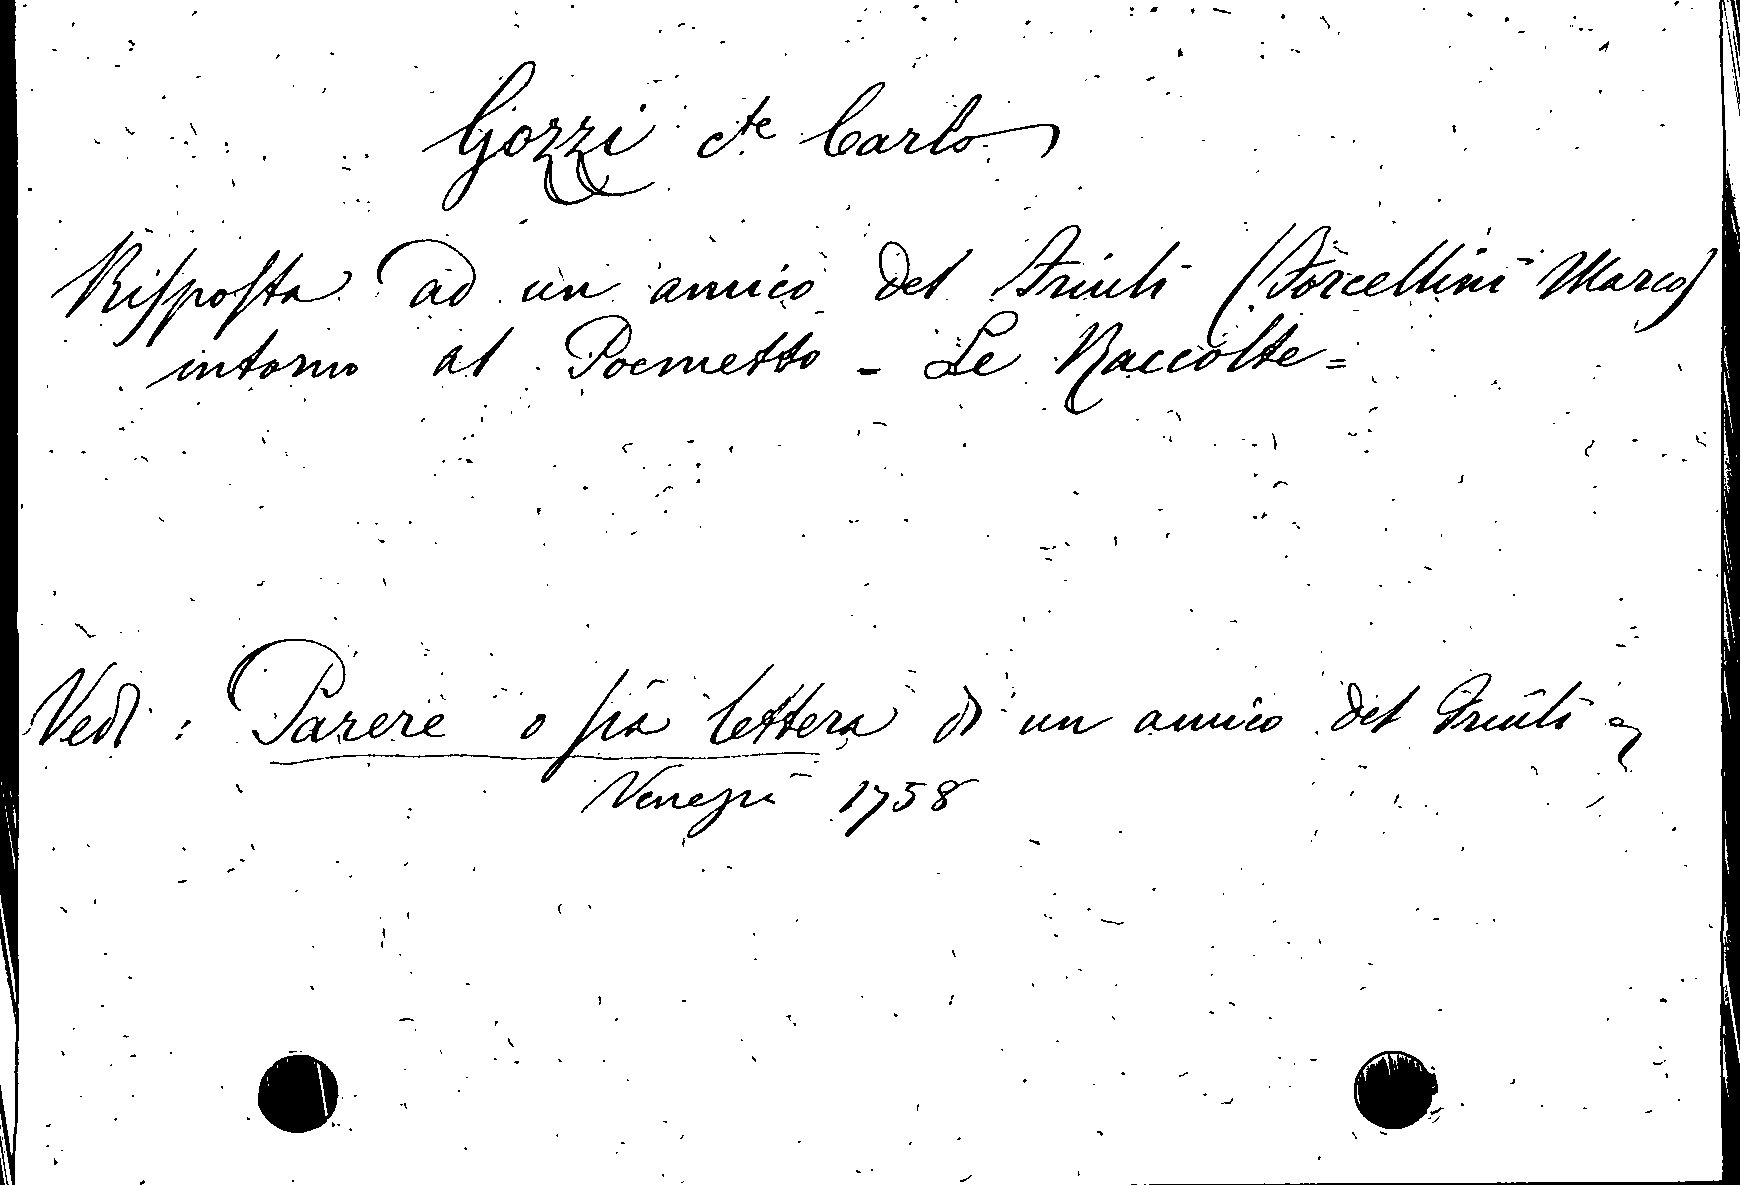 Gozzi cte Carlo
Risposta ad un amico del Friuli (Forcellini Marco)
intorno al Poemetto - Le Raccolte =
Vedi : Parere o sia lettera di un amico del Friuli
Venezia 1758